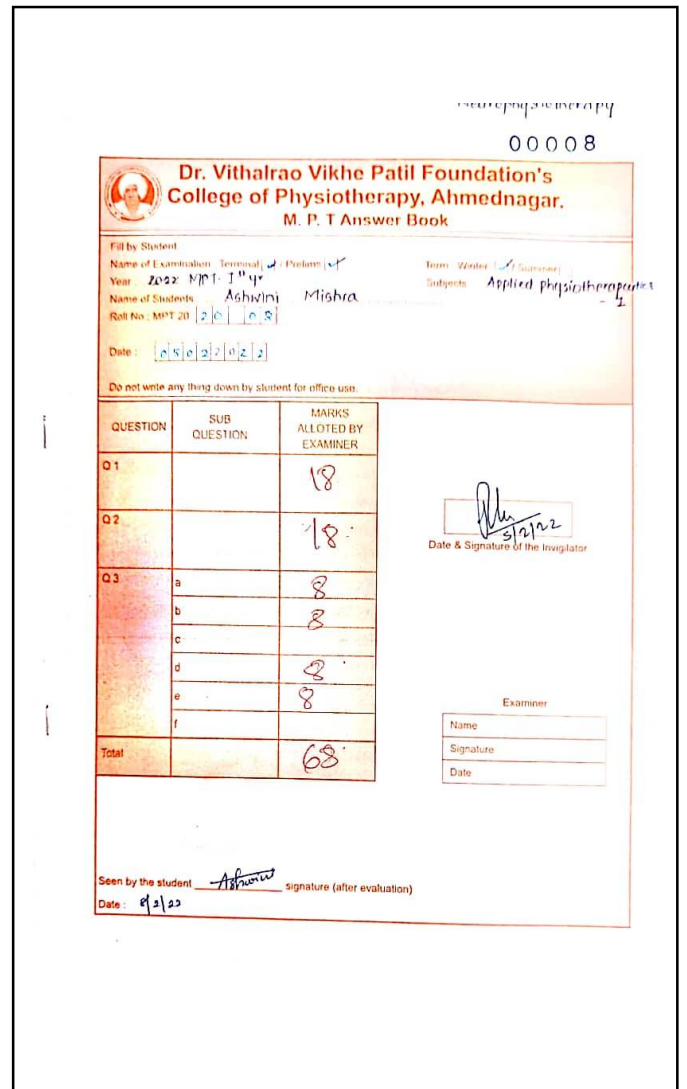 Neurophysiotherapy
00008
Dr. Vithalrao Vikhe Patil Foundation's
College of Physiotherapy, Ahmednagar.
M. P. T Answer Book
Fill by Student
Name of Examination Terminal / Prelims
Term Winter / Summer
Year 2022 MPT- Iˢᵗ yr
Subjects Applied physiotherapeutics - 1
Name of Students Ashwini Mishra
Roll No : MPT 20 20 08
Date : 05022022
Do not write any thing down by student for office use.
QUESTION SUB QUESTION MARKS ALLOTED BY EXAMINER
Q 1 18
Q 2 18
Q 3 a 8
b 8
c
d 8
e 8
f
Total 68
5/2/22
Date & Signature of the Invigilator
Examiner
Name
Signature
Date
Seen by the student Ashwini signature (after evaluation)
Date : 8/2/22